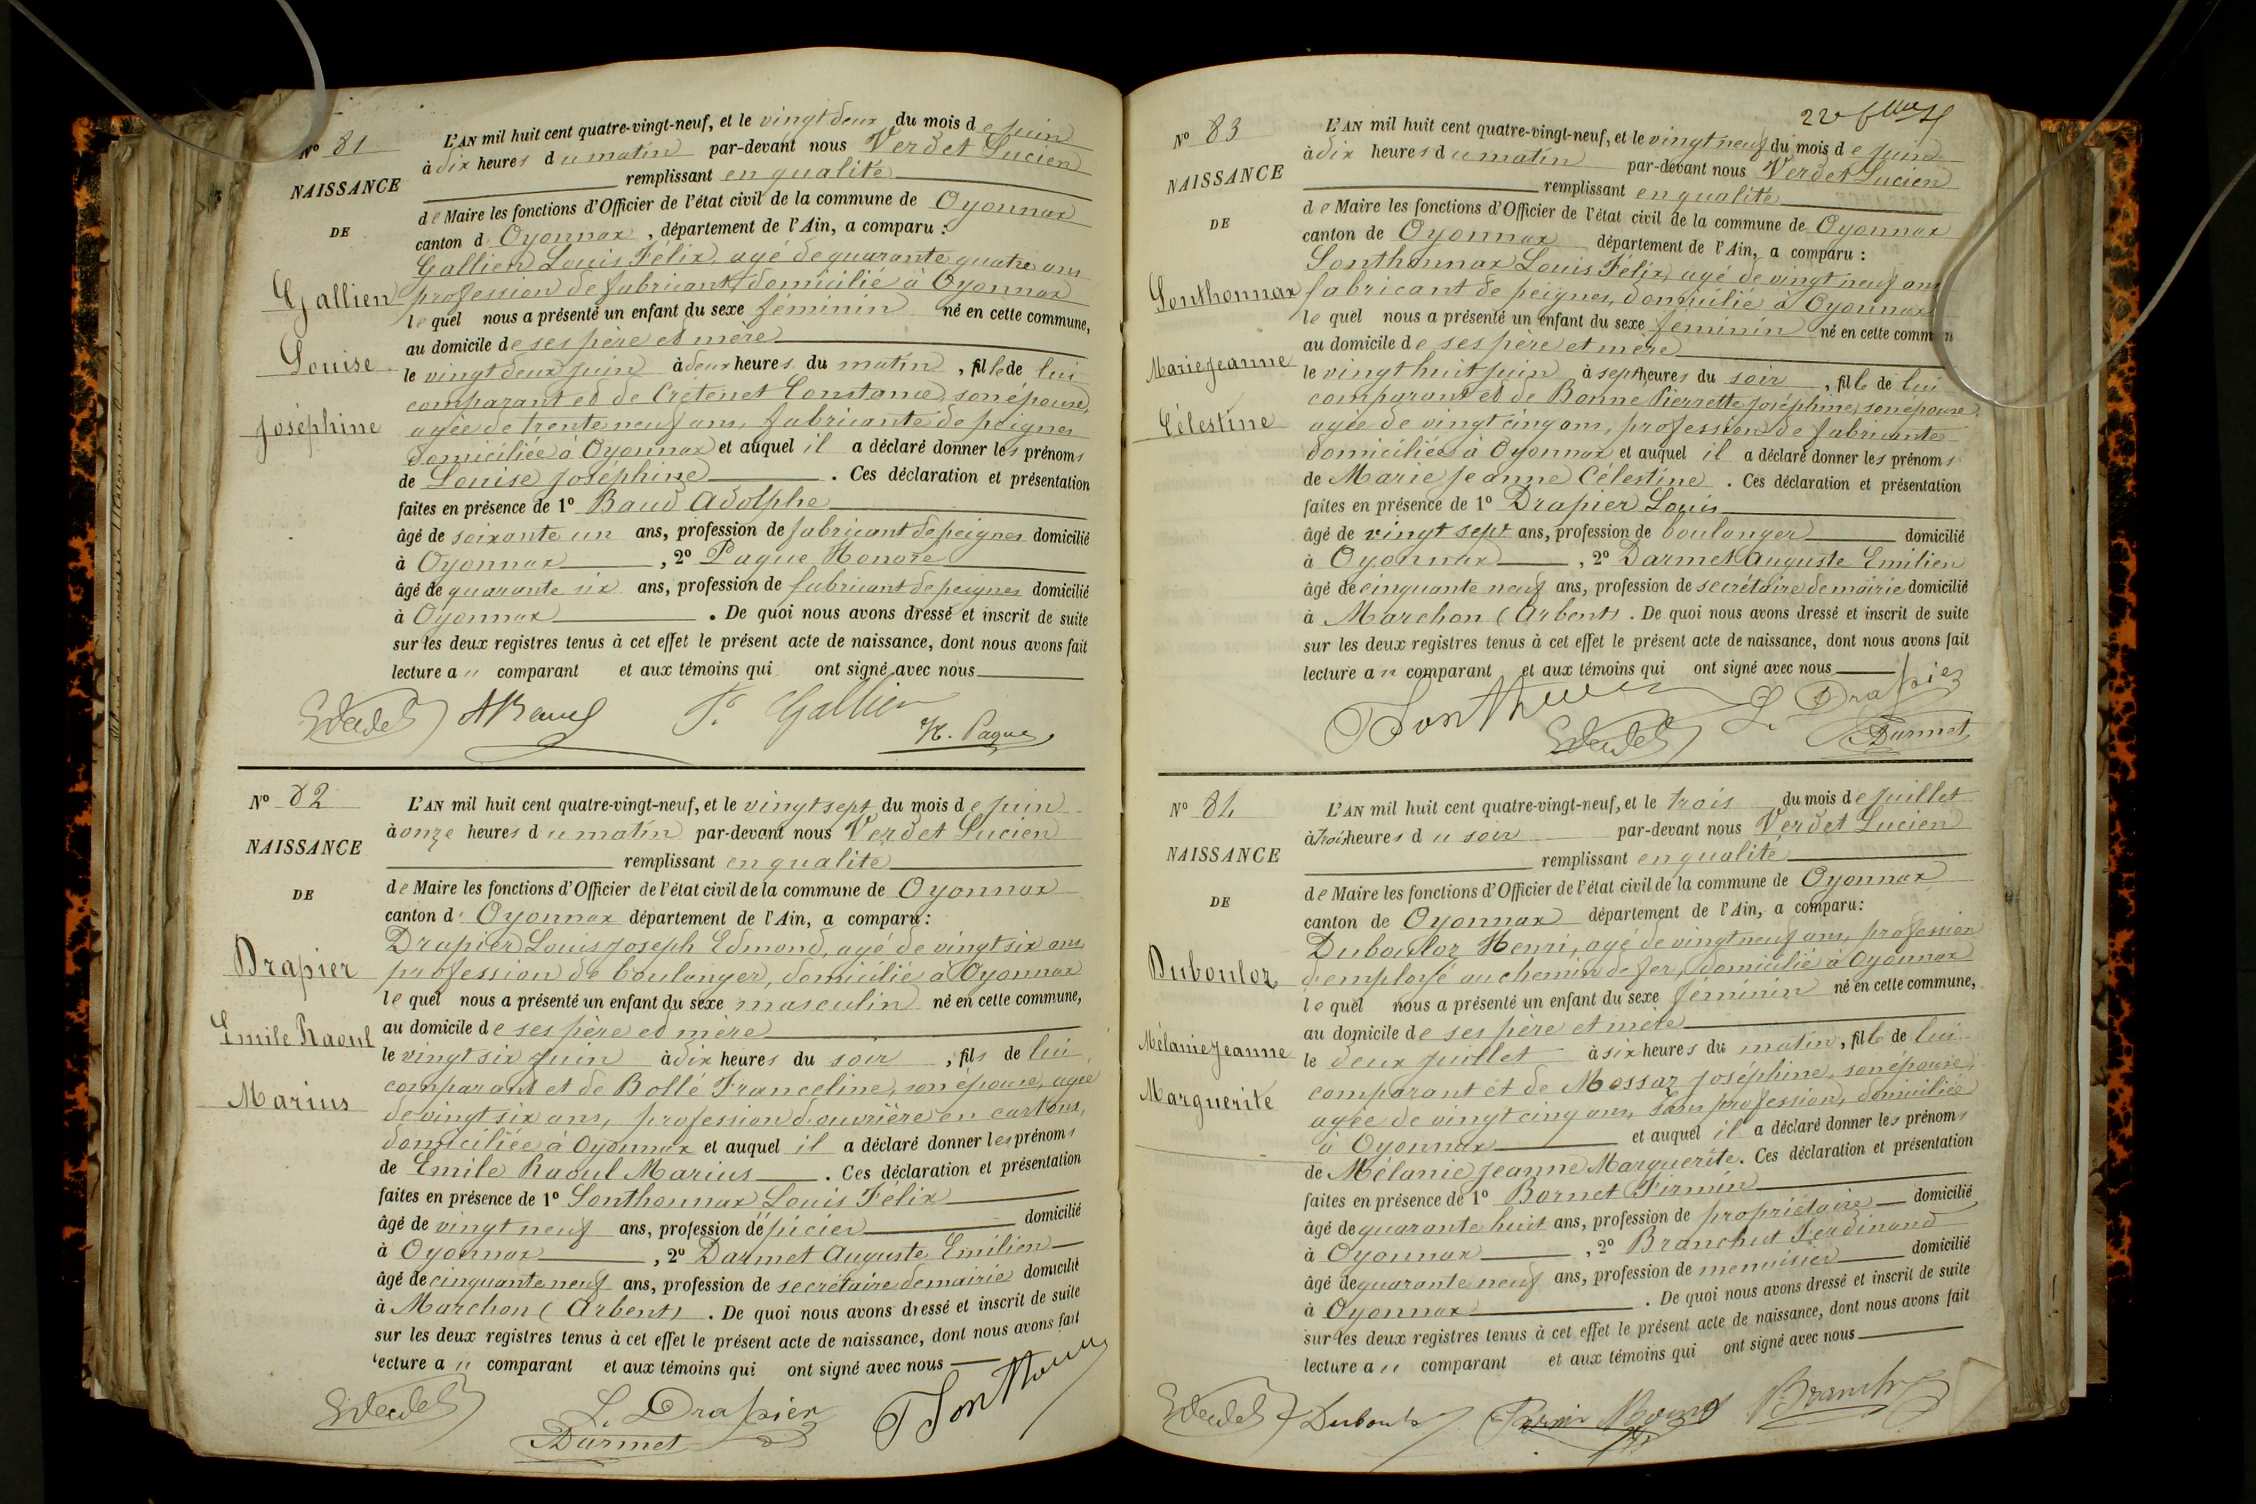 Nº 81
NAISSANCE
DE
Gallien
Louise
Joséphine
L'AN mil huit cent quatre-vingt-neuf, et le vingt deux du mois de juin
à dix heures du matin par-devant nous Verdet Lucien
remplissant en qualité
de Maire les fonctions d'Officier de l'état civil de la commune de Oyonnax
canton d Oyonnax, département de l'Ain, a comparu :
Gallien Louis Félix, agé de quarante quatre ans
profession de fabricant, domicilié à Oyonnax
lequel nous a présenté un enfant du sexe féminin né en cette commune,
au domicile de ses père et mère
le vingt deux juin à deux heures du matin, fille de lui
comparant et de Crétenet Constance, son épouse,
agée de trente neuf ans, fabricante de peignes
domiciliée à Oyonnax et auquel il a déclaré donner les prénoms
de Louise Joséphine. Ces déclaration et présentation
faites en présence de 1º Baud Adolphe
âgé de soixante un ans, profession de fabricant de peignes domicilié
à Oyonnax, 2º Paque Honoré
âgé de quarante six ans, profession de fabricant de peignes domicilié
à Oyonnax. De quoi nous avons dressé et inscrit de suite
sur les deux registres tenus à cet effet le présent acte de naissance, dont nous avons fait
lecture au comparant et aux témoins qui ont signé avec nous
A Baud F. Gallien
H. Paque
Nº 82
NAISSANCE
DE
Drapier
Emile Raoul
Marius
L'AN mil huit cent quatre-vingt-neuf, et le vingt sept du mois de juin
à onze heures du matin par-devant nous Verdet Lucien
remplissant en qualité
de Maire les fonctions d'Officier de l'état civil de la commune de Oyonnax
canton d' Oyonnax département de l'Ain, a comparu :
Drapier Louis Joseph Edmond, agé de vingt six ans,
profession de boulanger, domicilié à Oyonnax
lequel nous a présenté un enfant du sexe masculin né en cette commune,
au domicile de ses père et mère
le vingt six juin à dix heures du soir, fils de lui
comparant et de Bollé Franceline, son épouse, agée
de vingt six ans, profession d'ouvrière en cartons,
domiciliée à Oyonnax et auquel il a déclaré donner les prénoms
de Emile Raoul Marius. Ces déclaration et présentation
faites en présence de 1º Sonthonnax Louis Félix
âgé de vingt neuf ans, profession d'épicier domicilié
à Oyonnax, 2º Darmet Auguste Emilien
âgé de cinquante neuf ans, profession de secrétaire de mairie domicilié
à Marchon (Arbent). De quoi nous avons dressé et inscrit de suite
sur les deux registres tenus à cet effet le présent acte de naissance, dont nous avons fait
lecture au comparant et aux témoins qui ont signé avec nous
L. Drapier
Darmet
Nº 83
NAISSANCE
DE
Sonthonnax
Marie Jeanne
Célestine
L'AN mil huit cent quatre-vingt-neuf, et le vingt neuf du mois de juin
à dix heures du matin par-devant nous Verdet Lucien
remplissant en qualité
de Maire les fonctions d'Officier de l'état civil de la commune de Oyonnax
canton de Oyonnax département de l'Ain, a comparu :
Sonthonnax Louis Félix, agé de vingt neuf ans
fabricant de peignes, domicilié à Oyonnax
lequel nous a présenté un enfant du sexe féminin né en cette commun
au domicile de ses père et mère
le vingt huit juin à sept heures du soir, fille de lui
comparant et de Bonne Pierrette Joséphine, son épouse,
agée de vingt cinq ans, profession de fabricante
domiciliée à Oyonnax et auquel il a déclaré donner les prénoms
de Marie Jeanne Célestine. Ces déclaration et présentation
faites en présence de 1º Drapier Louis
âgé de vingt sept ans, profession de boulanger domicilié
à Oyonnax, 2º Darmet Auguste Emilien
âgé de cinquante neuf ans, profession de secrétaire de mairie domicilié
à Marchon (Arbent). De quoi nous avons dressé et inscrit de suite
sur les deux registres tenus à cet effet le présent acte de naissance, dont nous avons fait
lecture au comparant et aux témoins qui ont signé avec nous
L. Drapier
Darmet
Nº 84
NAISSANCE
DE
Dubouloz
Mélanie Jeanne
Marguerite
L'AN mil huit cent quatre-vingt-neuf, et le trois du mois de juillet
à trois heures du soir par-devant nous Verdet Lucien
remplissant en qualité
de Maire les fonctions d'Officier de l'état civil de la commune de Oyonnax
canton de Oyonnax département de l'Ain, a comparu :
Dubouloz Henri, agé de vingt neuf ans, profession
d'employé au chemin de fer, domicilié à Oyonnax
lequel nous a présenté un enfant du sexe féminin né en cette commune,
au domicile de ses père et mère
le deux juillet à six heures du matin, fille de lui
comparant et de Mossaz Joséphine, son épouse,
agée de vingt cinq ans, sans profession, domiciliée
à Oyonnax et auquel il a déclaré donner les prénoms
de Mélanie Jeanne Marguerite. Ces déclaration et présentation
faites en présence de 1º Bornet Firmin
âgé de quarante huit ans, profession de propriétaire domicilié
à Oyonnax, 2º Branchut Ferdinand
âgé de quarante neuf ans, profession de menuisier domicilié
à Oyonnax. De quoi nous avons dressé et inscrit de suite
sur les deux registres tenus à cet effet le présent acte de naissance, dont nous avons fait
lecture au comparant et aux témoins qui ont signé avec nous